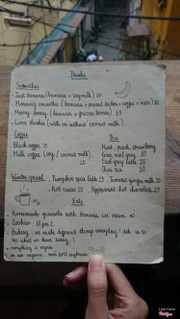 Drinks
Smoothies
- Just banana (banana + soymilk) 20
- Morning smoothie (banana + peanut butter + coffee + mate) 30
- Merry berry (bananas + frozen berries) 35
- Lime slushie (with or without coconut milk)
Coffee
Black coffee 15
Milk coffee (soy / coconut milk) 20
Tea
Mint, peach, strawberry
Iced earl grey 20
Earl grey latte 25
Thai tea 20
Winter special: - Pumpkin spice latte 25 - Turmeric ginger milk 20
- Hot cacao 25 - Peppermint hot chocolate 25
Eats
- Homemade granola with banana ice cream 40
- Cookies 25 for 2
- Bakery: we make different things everyday! Ask us to
see what we have today!
- everything is vegan